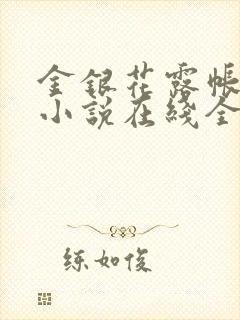 金銀花露帳
小説在綫全
练如俊